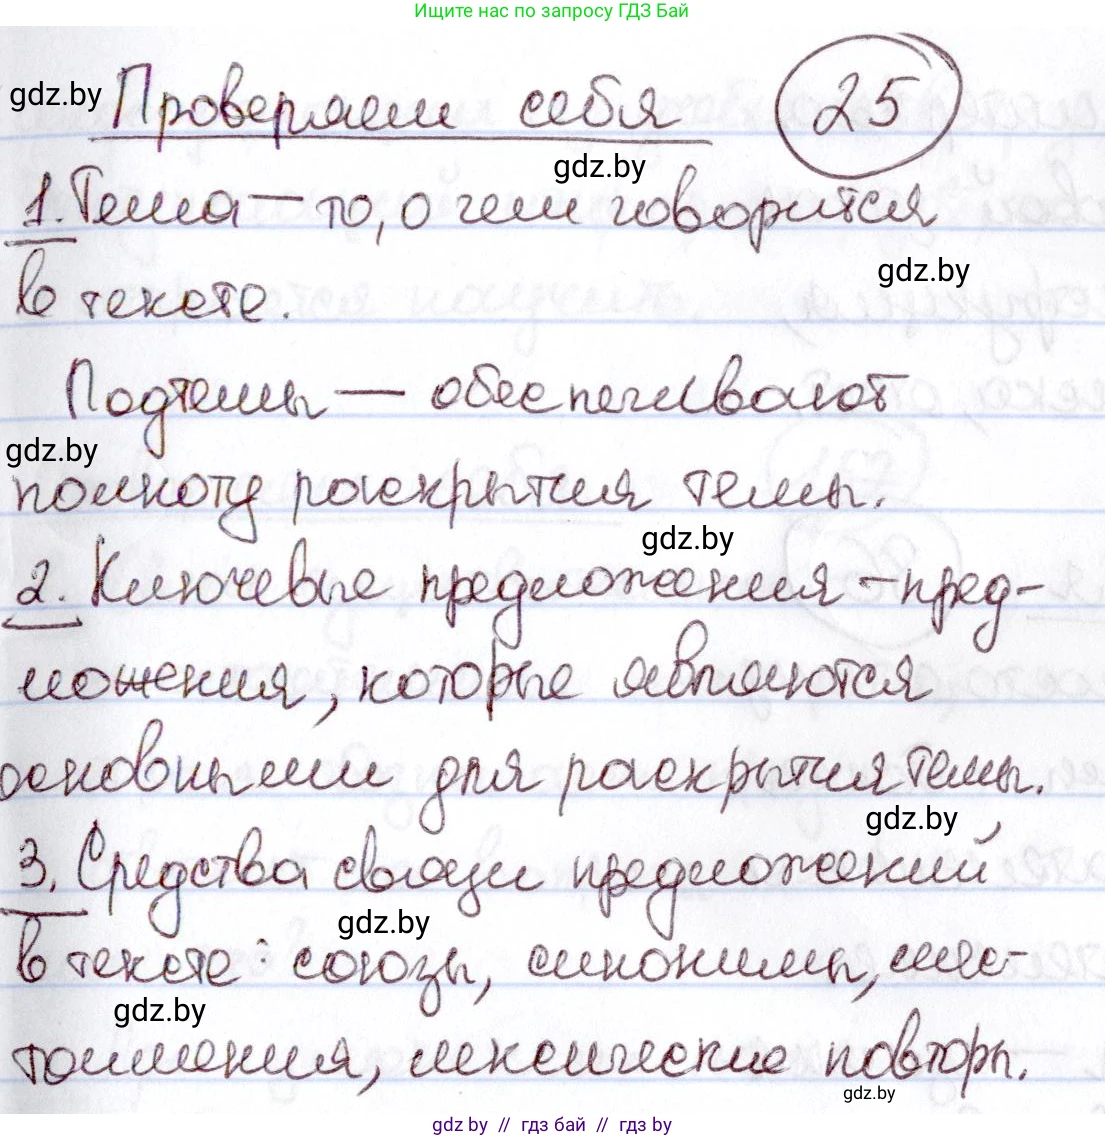 Ищите нас по запросу ГДЗ Бай
gdz.by
Проверяем себя 25
gdz.by
1. Тема – то, о чем говорится
gdz.by
в тексте.
Подтемы – обеспечивают
gdz.by
полноту раскрытия темы.
gdz.by
2. Ключевые предложения – пред-
ложения, которые являются
основными для раскрытия темы.
gdz.by
3. Средства связи предложений
gdz.by
в тексте: союзы, синонимы, мес-
gdz.by
тоимения, лексические повторы.
gdz.by
gdz.by // гдз бай // гдз by